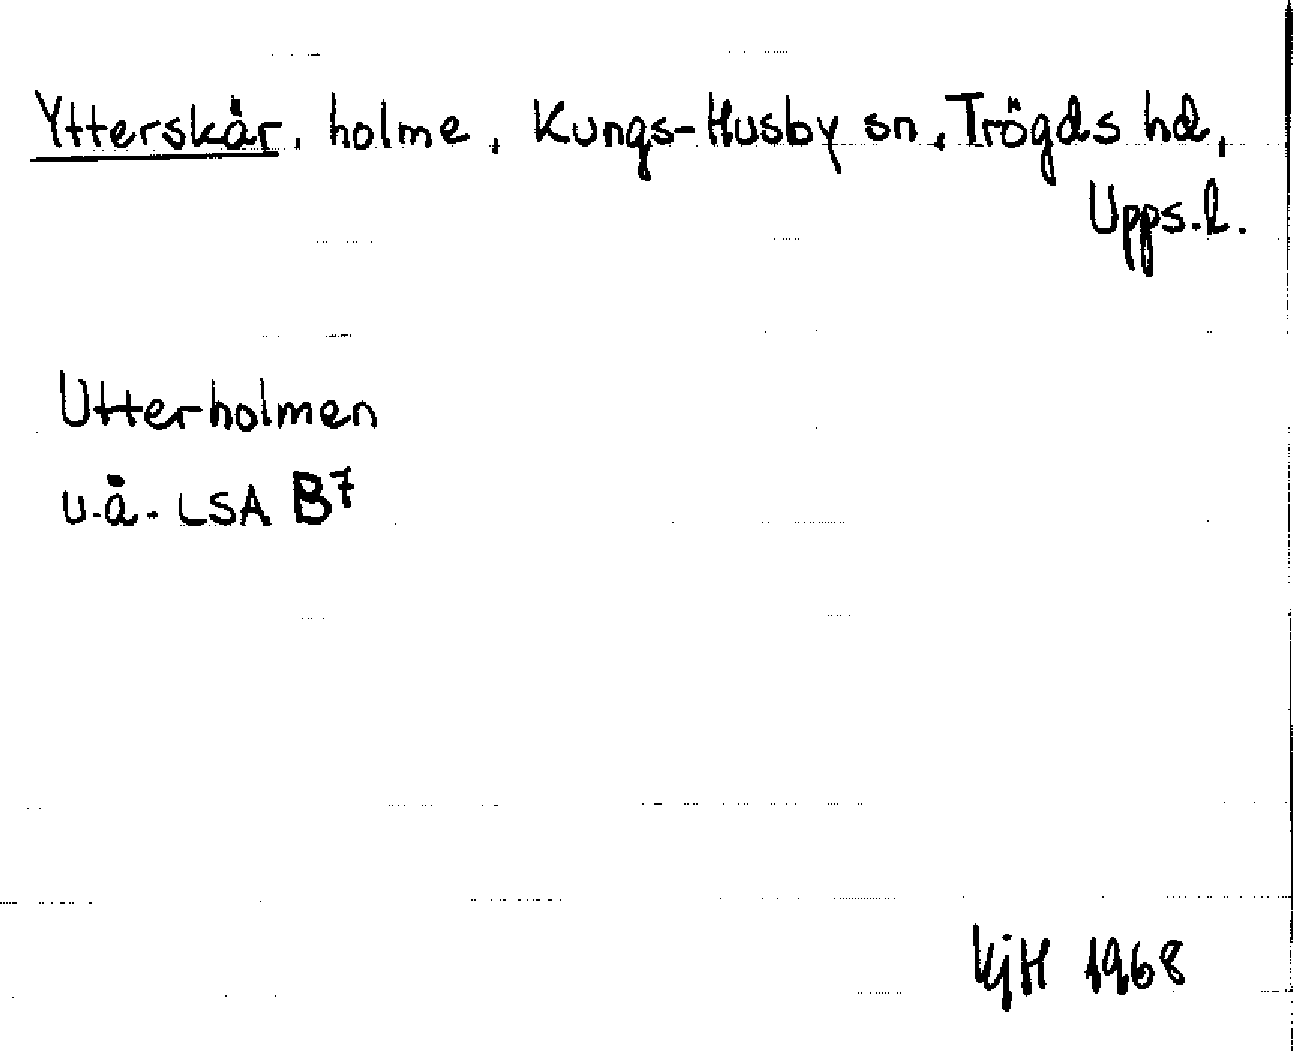 Ytterskär, holme, Kungs-Husby sn, Trögds hd,
Upps.l.
Utterholmen
u.å. LSA B⁷
KjH 1968